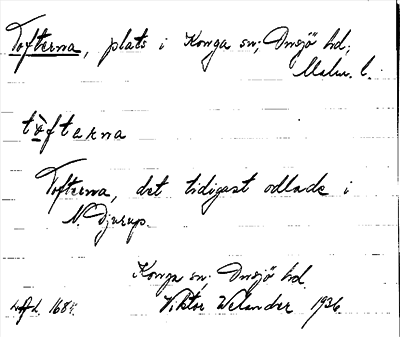 Tofterna, plats i Konga sn; Onsjö hd;
Malm. l.
tofterna
Tofterna, det tidigast odlade i
N. Djurup.
Konga sn; Onsjö hd.
Viktor Welander 1936.